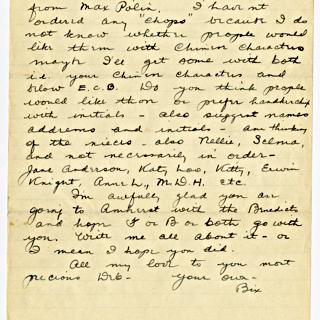 from Max Polin. I haven't
ordered any "chops" because I do
not know whether people would
like them with Chinese characters
maybe I'll get some with both
i.e. your Chinese characters and
below E.C.B. Do you think people
would like them or prefer handkerchiefs
with initials - also suggest names
addresses and initials - am thinking
of the nieces - also Nellie, Selma,
and not necessarily in order -
Jane Anderson, Katy Loo, Kitty, Erwin
Knight, Anne L., M.D.H. etc.
I'm awfully glad you are
going to Amherst with the Benedicts
and hope F or B or both go with
you. Write me all about it - or
I mean I hope you did.
All my love to you most
precious Deb - Your own -
Bix